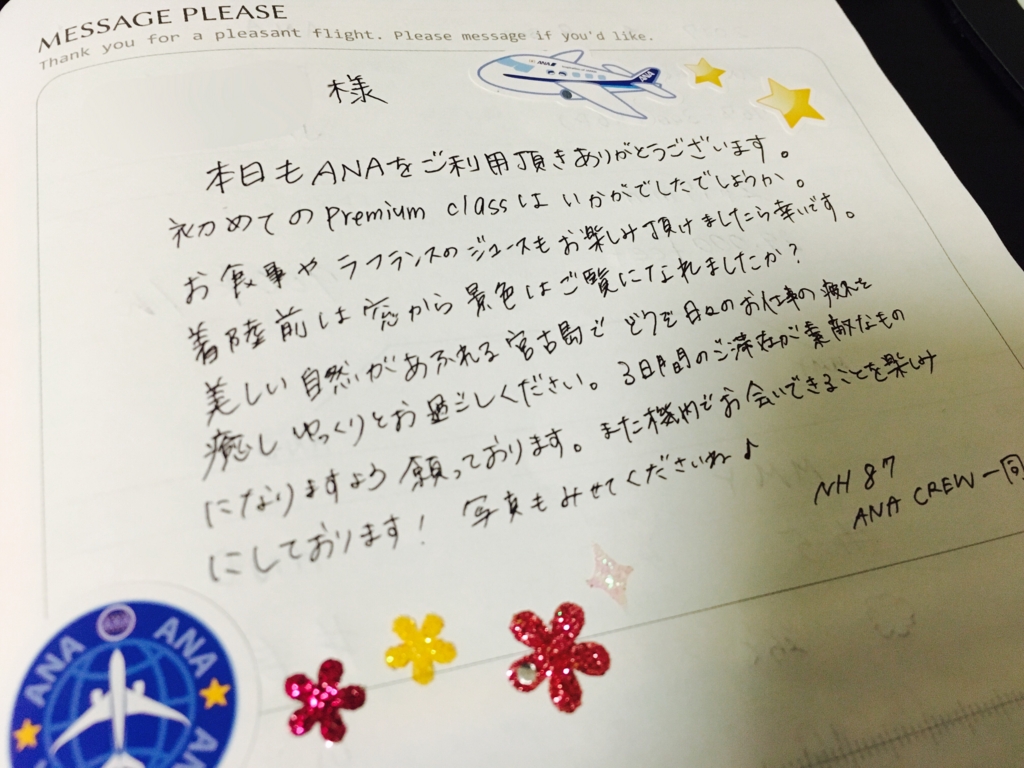 MESSAGE PLEASE
Thank you for a pleasant flight. Please message if you'd like.
様
本日もANAをご利用頂きありがとうございます。
初めてのPremium classはいかがでしたでしょうか。
お食事やラフランスのジュースもお楽しみ頂けましたら幸いです。
着陸前は窓から景色はご覧になれましたか?
美しい自然があふれる宮古島でどうぞ日々のお仕事の疲れを
癒しゆっくりとお過ごしください。3日間のご滞在が素敵なもの
になりますよう願っております。また機内でお会いできることを楽しみ
にしております! 写真もみせてくださいね♪
NH87
ANA CREW一同
ANA
ANA
ANA ANA
ANA